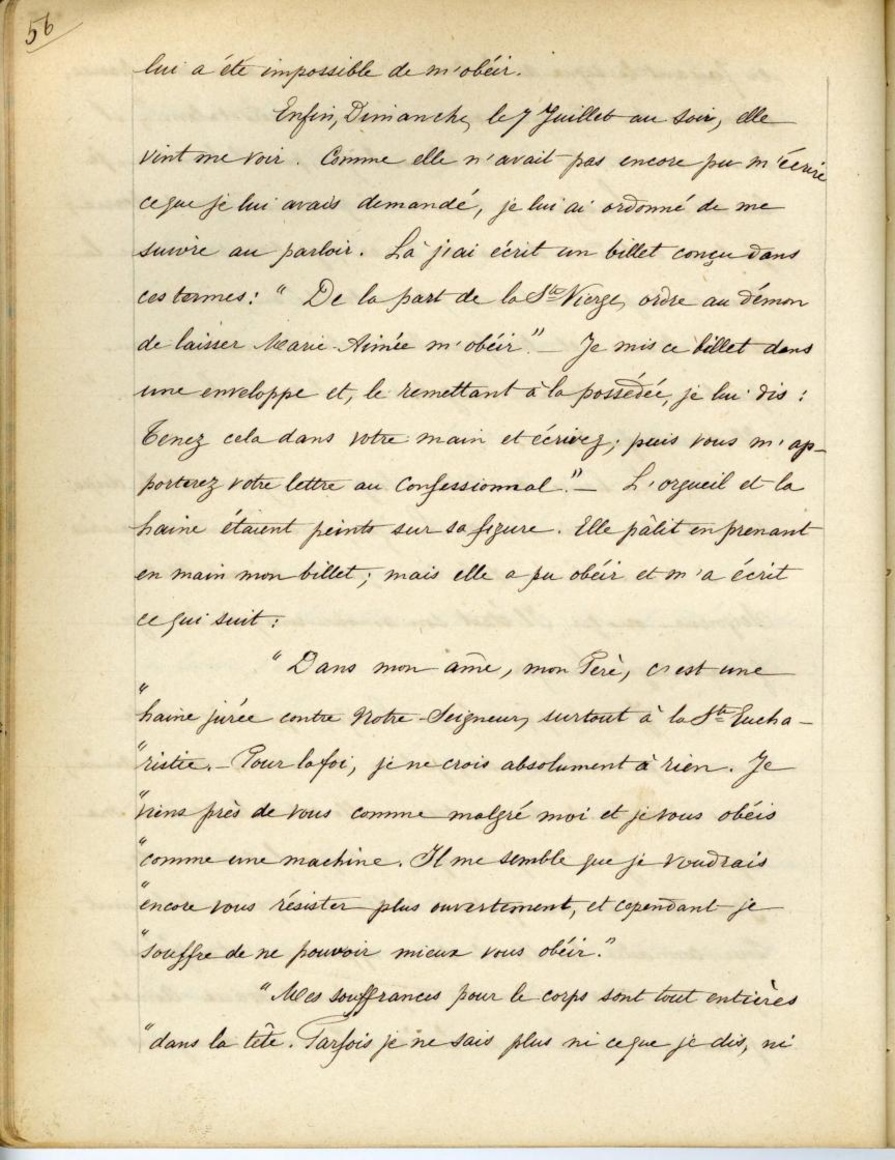 56
lui a été impossible de m'obéir.
Enfin, Dimanche, le 7 Juillet au soir, elle
vint me voir. Comme elle n'avait pas encore pu m'écrire
ce que je lui avais demandé, je lui ai ordonné de me
suivre au parloir. Là j'ai écrit un billet conçu dans
ces termes: " De la part de la Ste Vierge, ordre au démon
de laisser Marie-Aimée m'obéir". — Je mis ce billet dans
une enveloppe et, le remettant à la possédée, je lui dis :
Tenez cela dans votre main et écrivez; puis vous m'ap-
porterez votre lettre au Confessionnal". — L'orgueil et la
haine étaient peints sur sa figure. Elle pâlit en prenant
en main mon billet; mais elle a pu obéir et m'a écrit
ce qui suit :
" Dans mon âme, mon Père, c'est une
" haine jurée contre Notre-Seigneur, surtout à la Ste Eucha-
" ristie. — Pour la foi, je ne crois absolument à rien. Je
" viens près de vous comme malgré moi et je vous obéis
" comme une machine. Il me semble que je voudrais
" encore vous résister plus ouvertement, et cependant je
" souffre de ne pouvoir mieux vous obéir."
" Mes souffrances pour le corps sont tout entières
" dans la tête. Parfois je ne sais plus ni ce que je dis, ni